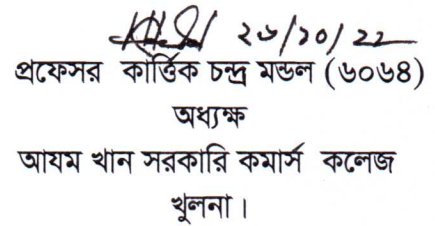 ২৬/১০/২২
প্রফেসর কার্ত্তিক চন্দ্র মন্ডল (৬০৬৪)
অধ্যক্ষ
আযম খান সরকারি কমার্স কলেজ
খুলনা।